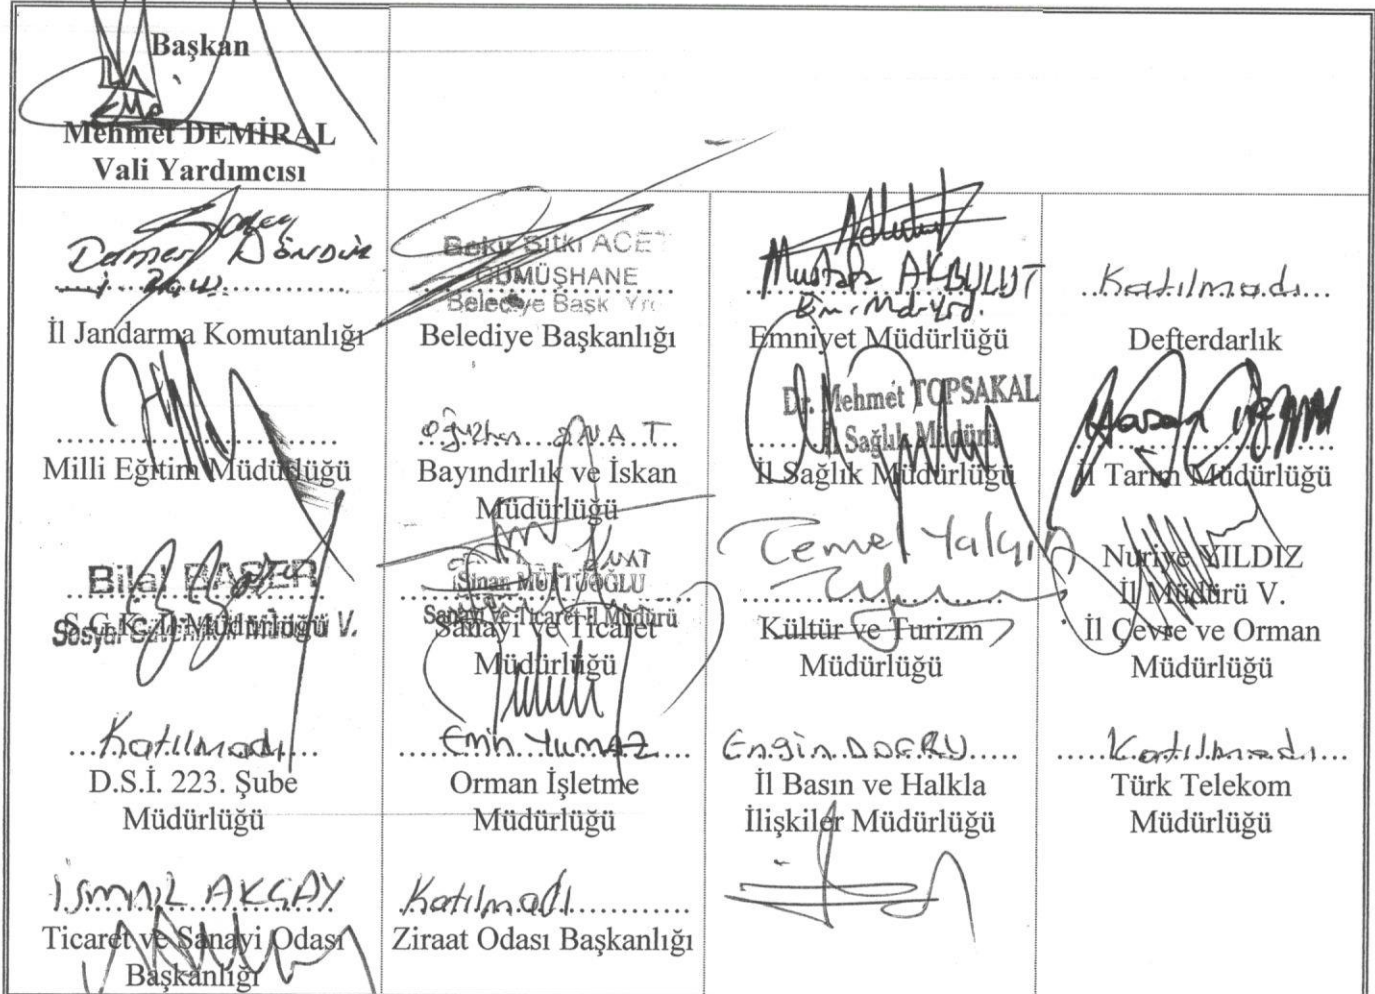 Başkan
Mehmet DEMİRAL
Vali Yardımcısı
İl Jandarma Komutanlığı
Bekir Sıtkı ACET
GÜMÜŞHANE
Belediye Başk Yrd
Belediye Başkanlığı
Mustafa AKBULUT
Em. Md. Yrd.
Emniyet Müdürlüğü
Katılmadı
Defterdarlık
Milli Eğitim Müdürlüğü
Bayındırlık ve İskan
Müdürlüğü
Dr. Mehmet TOPSAKAL
İl Sağlık Müdürü
İl Sağlık Müdürlüğü
İl Tarım Müdürlüğü
Bilal BAŞER
S.G.K. İl Müdürlüğü V.
Sinan MÜFTÜOĞLU
Sanayi ve Ticaret İl Müdürü
Sanayi ve Ticaret
Müdürlüğü
Temel Yalçın
Kültür ve Turizm
Müdürlüğü
Nuriye YILDIZ
İl Müdürü V.
İl Çevre ve Orman
Müdürlüğü
Katılmadı
D.S.İ. 223. Şube
Müdürlüğü
Emin Yılmaz
Orman İşletme
Müdürlüğü
Engin DOĞRU
İl Basın ve Halkla
İlişkiler Müdürlüğü
Katılmadı
Türk Telekom
Müdürlüğü
İSMAİL AKÇAY
Ticaret ve Sanayi Odası
Başkanlığı
Katılmadı
Ziraat Odası Başkanlığı